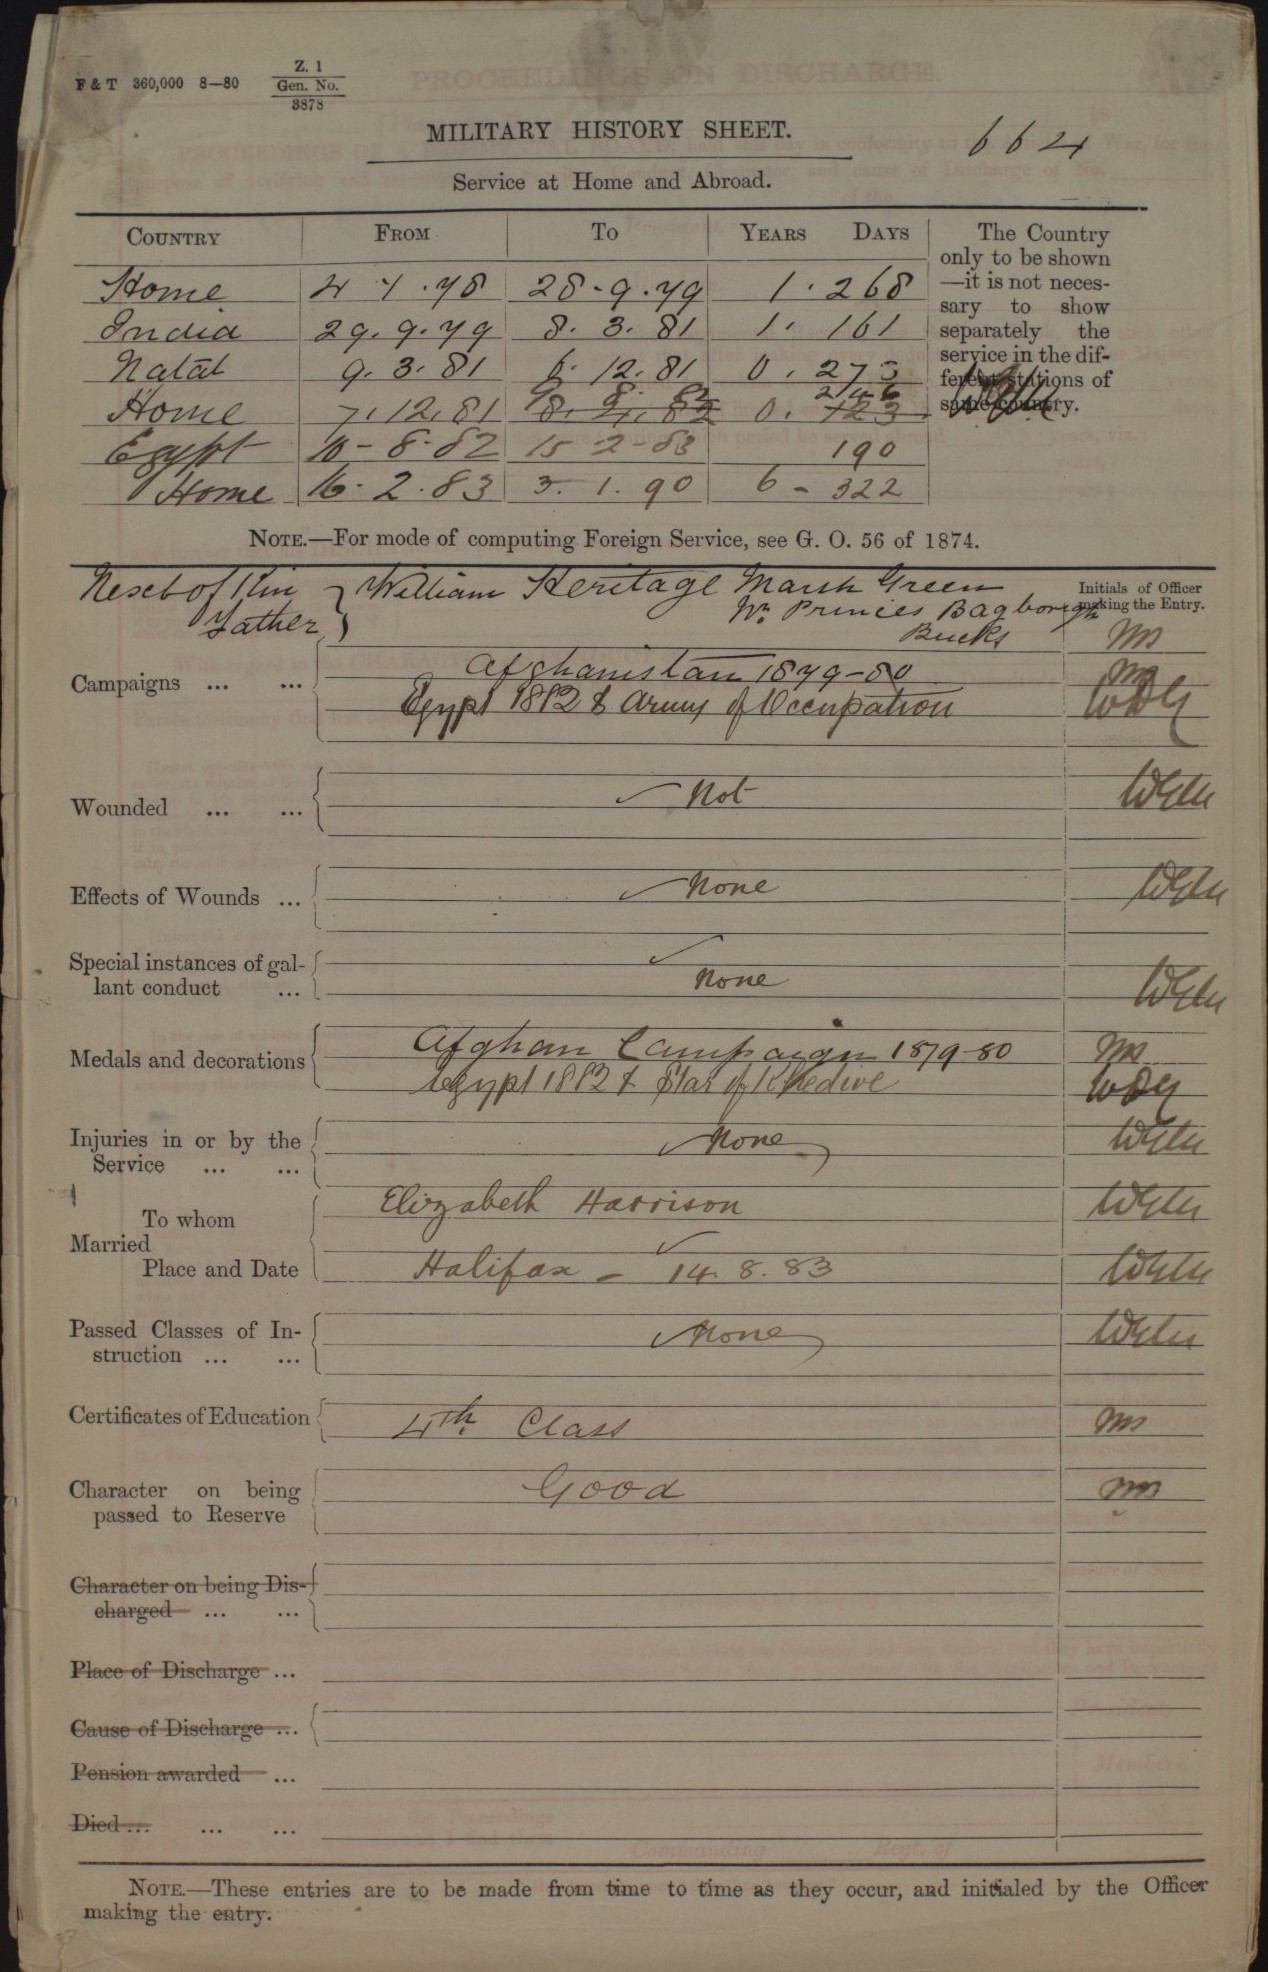 F & T 360,000 8—80
Z. 1
Gen. No.
3878
MILITARY HISTORY SHEET.
664
Service at Home and Abroad.
COUNTRY FROM TO YEARS DAYS
Home 4 1 . 78 28 . 9 . 79 1 . 268
India 29 . 9 . 79 8 . 3 . 81 1 . 161
Natal 9 . 3 . 81 6 . 12 . 81 0 . 273
9 8 82 246
Home 7 . 12 . 81 8 . 4 . 82 0 . 123
Egypt 10 - 8 - 82 15 - 2 - 83 190
Home 16 . 2 . 83 3 . 1 . 90 6 - 322
The Country
only to be shown
—it is not neces-
sary to show
separately the
service in the dif-
ferent stations of
same country.
NOTE.—For mode of computing Foreign Service, see G. O. 56 of 1874.
Next of Kin } William Heritage Marsh Green
Father Nr. Princes
Bucks
Initials of Officer
making the Entry.
Campaigns ... ... Afghanistan 1879-80
Egypt 1882 & Army of Occupation
Wounded ... ... Not
Effects of Wounds ... None
Special instances of gal-
lant conduct ... None
Medals and decorations Afghan Campaign 1879-80
Egypt 1882 & Star of Khedive
Injuries in or by the None
Service ... ...
To whom Elizabeth Harrison
Married
Place and Date Halifax - 14. 8. 83
Passed Classes of In- None
struction ... ...
Certificates of Education 4th Class
Character on being Good
passed to Reserve
Character on being Dis-
charged ... ...
Place of Discharge ...
Cause of Discharge ...
Pension awarded ...
Died ... ... ...
NOTE.—These entries are to be made from time to time as they occur, and initialed by the Officer
making the entry.